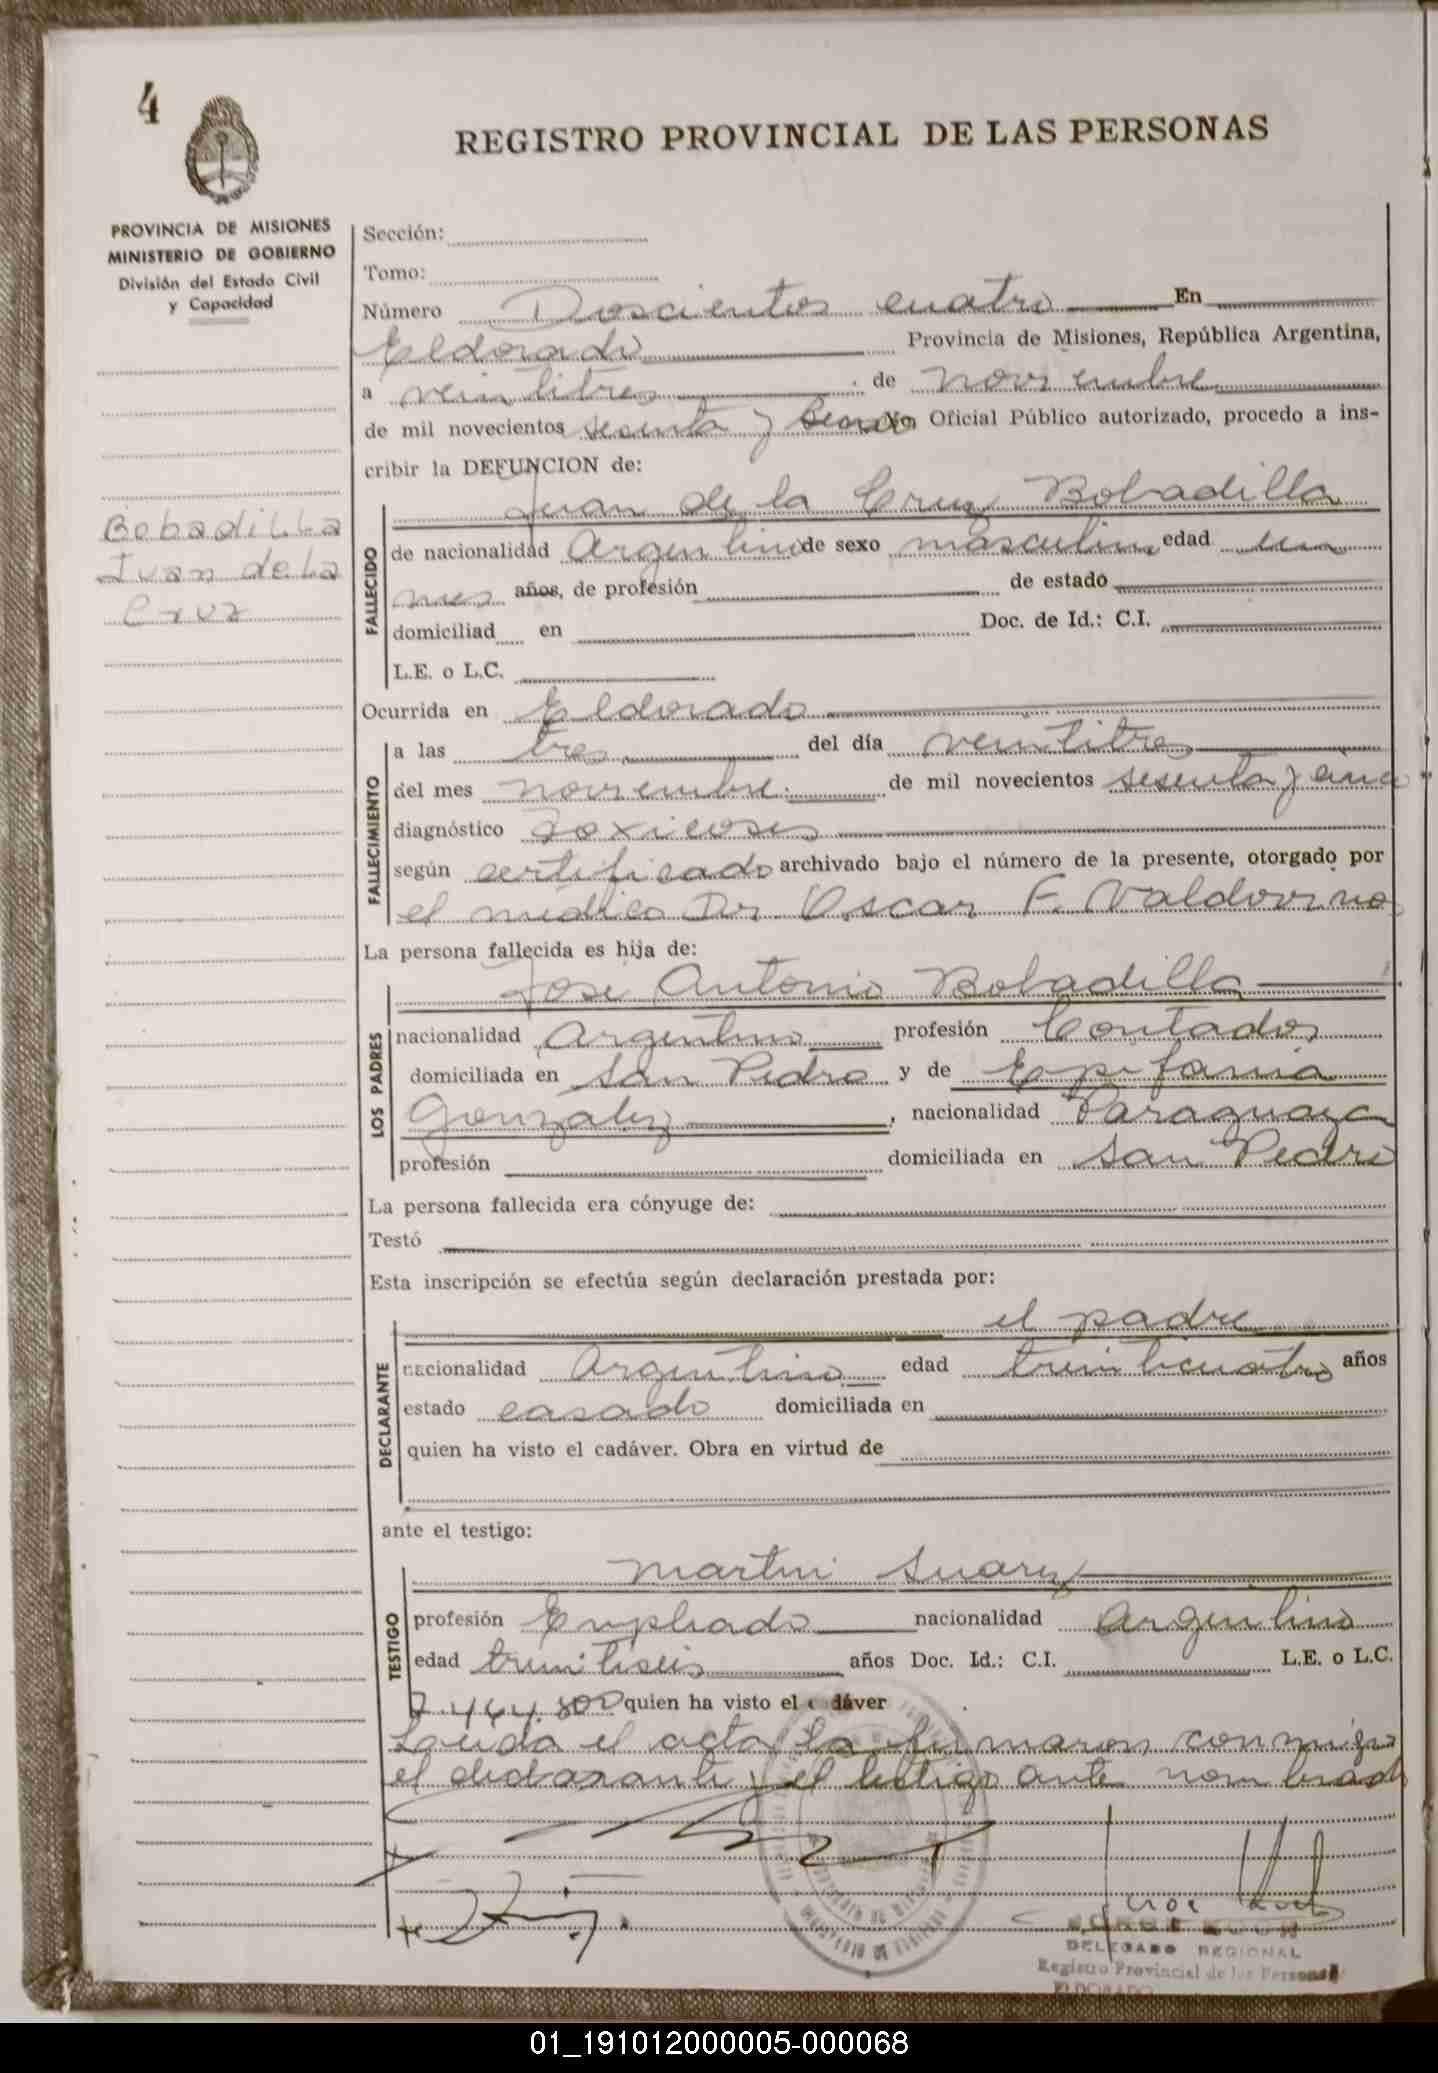 4
REGISTRO PROVINCIAL DE LAS PERSONAS
PROVINCIA DE MISIONES
MINISTERIO DE GOBIERNO
División del Estado Civil
y Capacidad
Bobadilla
Juan de La
Cruz
Sección:
Tomo:
Número Doscientos cuatro En
Eldorado Provincia de Misiones, República Argentina,
a veintitres de noviembre
de mil novecientos sesenta y Yo Oficial Público autorizado, procedo a ins-
cribir la DEFUNCION de:
Juan de la Cruz Bobadilla
FALLECIDO
de nacionalidad Argentino de sexo masculino edad un
mes años, de profesión de estado
domiciliad en Doc. de Id.: C.I.
L.E. o L.C.
Ocurrida en Eldorado
FALLECIMIENTO
a las tres del día veintitres
del mes noviembre de mil novecientos sesenta y
diagnóstico Toxicosis
según certificado archivado bajo el número de la presente, otorgado por
el medico Dr Oscar F. Valdovino
La persona fallecida es hija de:
LOS PADRES
Jose Antonio Bobadilla
nacionalidad Argentino profesión Contador
domiciliada en San Pedro y de Epifania
Gonzalez, nacionalidad Paraguaya
profesión domiciliada en San Pedro
La persona fallecida era cónyuge de:
Testó
Esta inscripción se efectúa según declaración prestada por:
DECLARANTE
el padre
nacionalidad Argentino edad treinticuatro años
estado casado domiciliada en
quien ha visto el cadáver. Obra en virtud de
ante el testigo:
TESTIGO
Martin Suarez
profesión Empleado nacionalidad Argentino
edad treintiseis años Doc. Id.: C.I. L.E. o L.C.
7.464.800 quien ha visto el cadáver
Leida el acta la firmaron conmigo
el declarante y el testigo ante nombrado
DELEGADO REGIONAL
Registro Provincial de las Personas
ELDORADO
01_191012000005-000068